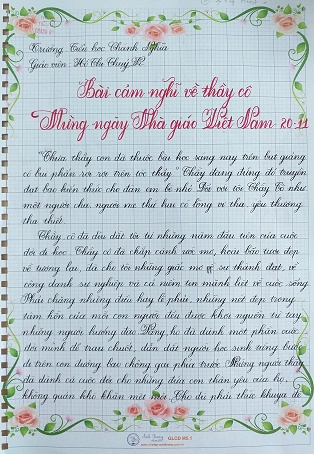 Trường Tiểu học Chánh Nghĩa
Giáo viên: Hồ Thị Thuý
Bài cảm nghĩ về thầy cô
Mừng ngày Nhà giáo Việt Nam 20-11
"Thưa thầy con đã thuộc bài học sang nay trên bục giảng
có bụi phấn rơi rơi trên tóc thầy" Thầy đang đứng đó truyền
đạt bao kiến thức cho đàn em bé nhỏ. Đối với tôi Thầy Cô như
một người cha, người mẹ thứ hai có lòng vị tha, yêu thương
tha thiết.
Thầy cô đã dìu dắt tôi từ những năm đầu tiên của cuộc
đời đi học. Thầy cô đã chắp cánh ước mơ, hoài bão tươi đẹp
về tương lai, đã cho tôi những giấc mơ về sự thành đạt, về
công danh sự nghiệp và cả niềm tin mãnh liệt về cuộc sống.
Phải chăng những điều hay lẽ phải, những nét đẹp trong
tâm hồn của mỗi con người đều được khơi nguồn từ tay
những người hướng đạo. Vâng, họ đã dành một phần cuộc
đời mình để trau chuốt, dẫn dắt người học sinh vững bước
đi trên con đường bao chông gai phía trước. Những người thầy
đã dành cả cuộc đời cho những đứa con thân yêu của họ,
không quản khó khăn mệt mỏi. Cho dù phải thức khuya để
Anh Dương
QLCD M5.1